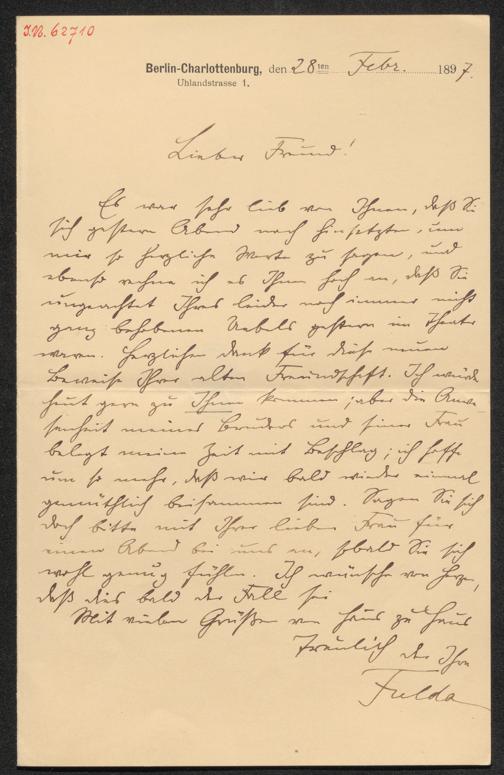 J.N. 62710
Berlin-Charlottenburg, den 28ten Febr. 1897.
Uhlandstrasse 1.
Lieber Freund!
Es war sehr lieb von Ihnen, daß Sie
sich gestern Abend noch hinsetzten, um
mir so herzliche Worte zu sagen, und
ebenso rechne ich es Ihnen hoch an, daß Sie
ungeachtet Ihres leider noch immer nicht
ganz behobenen Uebels gestern im Theater
waren. Herzlichen Dank für diese neuen
Beweise Ihrer alten Freundschaft. Ich würde
heut gern zu Ihnen kommen; aber die Anwe-
senheit meines Bruders und seiner Frau
belegt meine Zeit mit Beschlag; ich hoffe
um so mehr, daß wir bald wieder einmal
gemüthlich beisammen sind. Sagen Sie sich
doch bitte mit Ihrer lieben Frau für
einen Abend bei uns an, sobald Sie sich
wohl genug fühlen. Ich wünsche von Herzen,
daß dies bald der Fall sei
Mit vielen Grüßen von Haus zu Haus
treulich der Ihre
Fulda